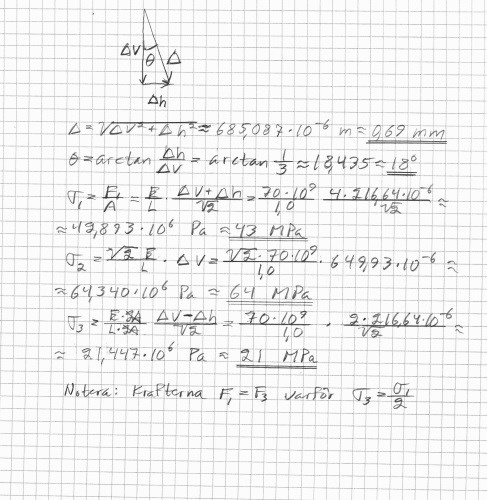 ΔV
θ
Δ
Δh
Δ = √(ΔV² + Δh²) ≈ 685,087·10⁻⁶ m ≈ 0,69 mm
θ = arctan Δh/ΔV = arctan 1/3 ≈ 18,435 ≈ 18°
σ₁ = F₁/A = E/L · (ΔV+Δh)/√2 = 70·10⁹/1,0 · 4·216,64·10⁻⁶/√2 ≈
≈ 42,893·10⁶ Pa ≈ 43 MPa
σ₂ = √2 E/L · ΔV = √2·70·10⁹/1,0 · 649,93·10⁻⁶ ≈
≈ 64,340·10⁶ Pa ≈ 64 MPa
σ₃ = E·2A/L·2A (ΔV−Δh)/√2 = 70·10⁹/1,0 · 2·216,64·10⁻⁶/√2 ≈
≈ 21,447·10⁶ Pa ≈ 21 MPa
Notera: Krafterna F₁ = F₃ varför σ₃ = σ₁/2